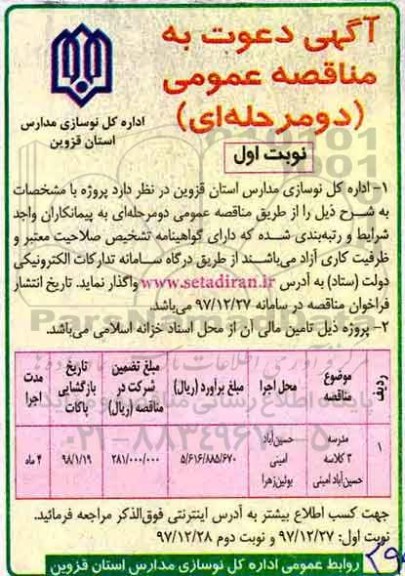 آگهی دعوت به
مناقصه عمومی
(دومرحله‌ای)
اداره کل نوسازی مدارس
استان قزوین
نوبت اول
۱- اداره کل نوسازی مدارس استان قزوین در نظر دارد پروژه با مشخصات
به شرح ذیل را از طریق مناقصه عمومی دومرحله‌ای به پیمانکاران واجد
شرایط و رتبه‌بندی شده که دارای گواهینامه تشخیص صلاحیت معتبر و
ظرفیت کاری آزاد می‌باشند از طریق درگاه سامانه تدارکات الکترونیکی
دولت (ستاد) به آدرس www.setadiran.ir واگذار نماید. تاریخ انتشار
فراخوان مناقصه در سامانه ۹۷/۱۲/۲۷ می‌باشد.
۲- پروژه ذیل تامین مالی آن از محل اسناد خزانه اسلامی می‌باشد.
ردیف | موضوع مناقصه | محل اجرا | مبلغ برآورد (ریال) | مبلغ تضمین شرکت در مناقصه (ریال) | تاریخ بازگشایی پاکات | مدت اجرا
۱ | مدرسه ۳ کلاسه حسین‌آباد امینی | حسین‌آباد امینی بوئین‌زهرا | ۵/۶۱۶/۸۸۵/۶۷۰ | ۲۸۱/۰۰۰/۰۰۰ | ۹۸/۱/۱۹ | ۴ ماه
جهت کسب اطلاع بیشتر به آدرس اینترنتی فوق‌الذکر مراجعه فرمائید.
نوبت اول: ۹۷/۱۲/۲۷ و نوبت دوم ۹۷/۱۲/۲۸
روابط عمومی اداره کل نوسازی مدارس استان قزوین
۰۲۱-۸۸۳۴۹۶۷۰-۵